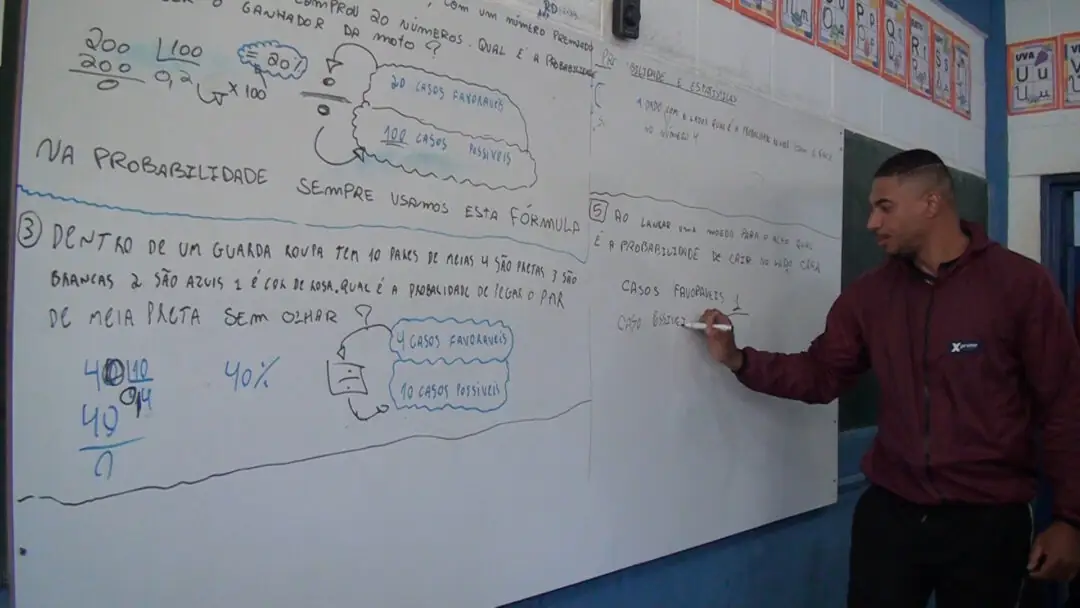 COMPROU 20 NÚMEROS. QUAL É A PROBABILIDADE
O GANHADOR DA MOTO?
COM UM NÚMERO PREMIADO
200 100
200 0,2 x 100
0
20%
20 CASOS FAVORAVEIS
100 CASOS POSSIVEIS
NA PROBABILIDADE SEMPRE USAMOS ESTA FÓRMULA
3 DENTRO DE UM GUARDA ROUPA TEM 10 PARES DE MEIAS 4 SÃO PRETAS 3 SÃO
BRANCAS 2 SÃO AZUIS 1 É COR DE ROSA. QUAL É A PROBALIDADE DE PEGAR O PAR
DE MEIA PRETA SEM OLHAR?
40 10
40 0,4
0
40%
4 CASOS FAVORAVEIS
10 CASOS POSSIVEIS
BILIDADE E
1 DADO COM 6 LADOS QUAL É A PROBABILIDADE
NO NÚMERO 4
5 AO LANÇAR UMA MOEDA PARA O ALTO QUAL
É A PROBABILIDADE DE CAIR NO LADO CARA
CASOS FAVORAVEIS 1
CASO POSSIVEI
Xprime
UVA
U u